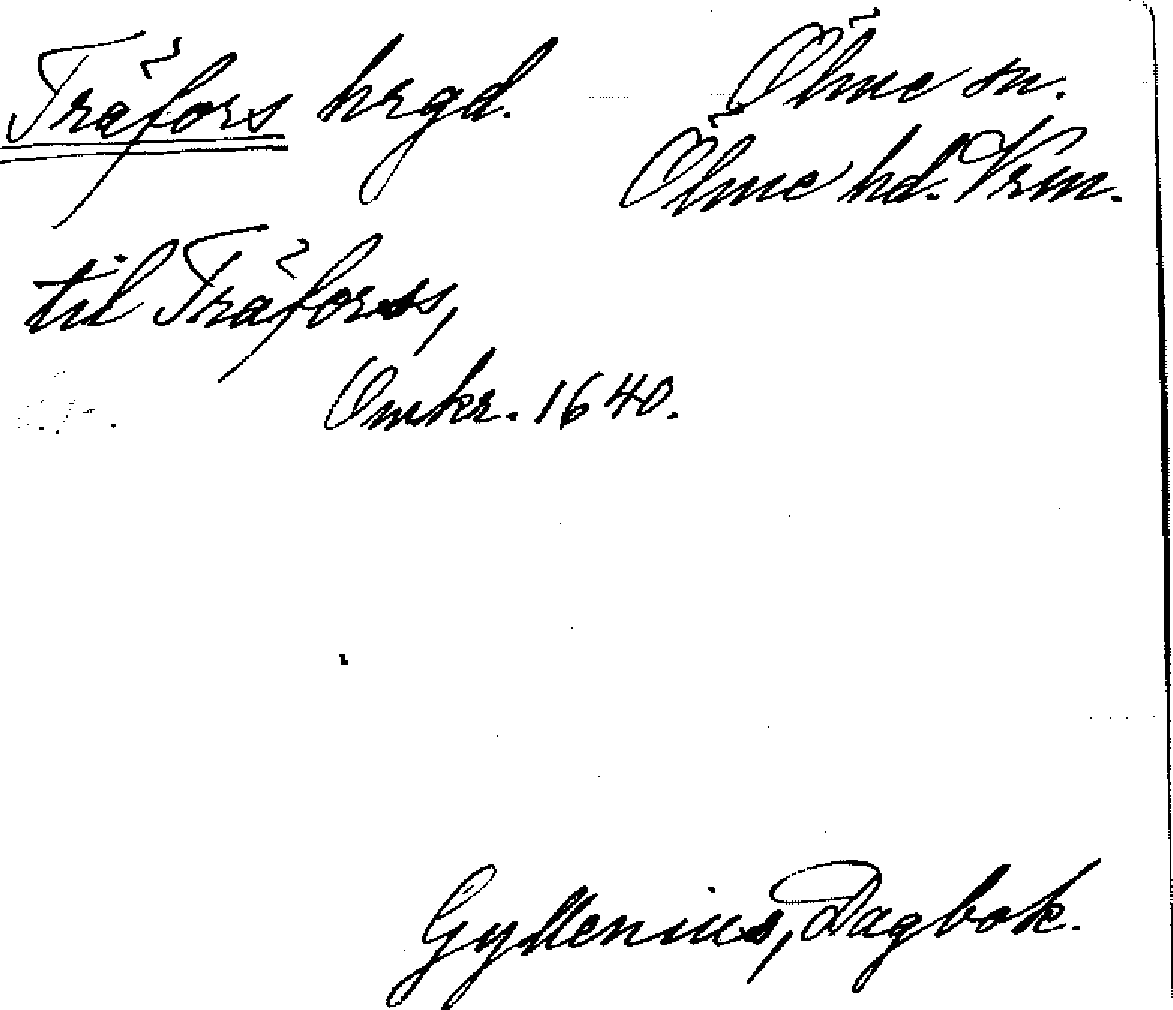 Träfors hrgd.
Ölme sn.
Ölme hd. Vrm.
til Träforss,
Omkr. 1640.
Gyllenius, Dagbok.